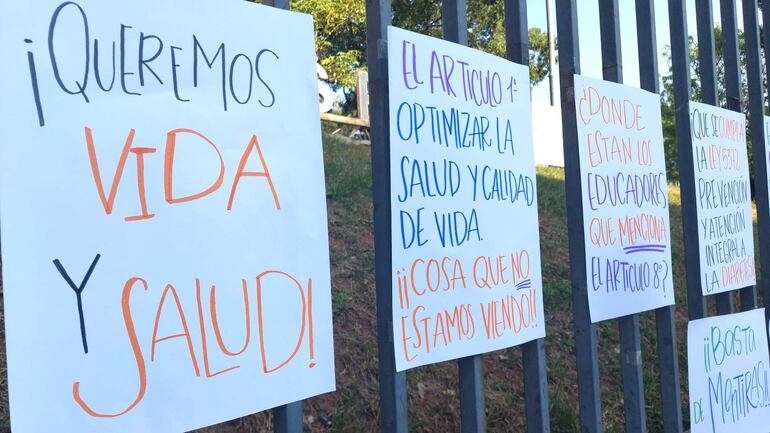 ¡QUEREMOS
VIDA
Y
SALUD!
EL ARTICULO 1º
OPTIMIZAR LA
SALUD Y CALIDAD
DE VIDA.
¡¡COSA QUE NO
ESTAMOS VIENDO!!
¿DONDE
ESTAN LOS
EDUCADORES
QUE MENCIONA
EL ARTICULO 8º?
QUE SE CUMPLA
LA LEY 5372
PREVENCIÓN
Y ATENCIÓN
INTEGRAL A
LA DIABETES!
¡¡BASTA
DE MENTIRAS!!